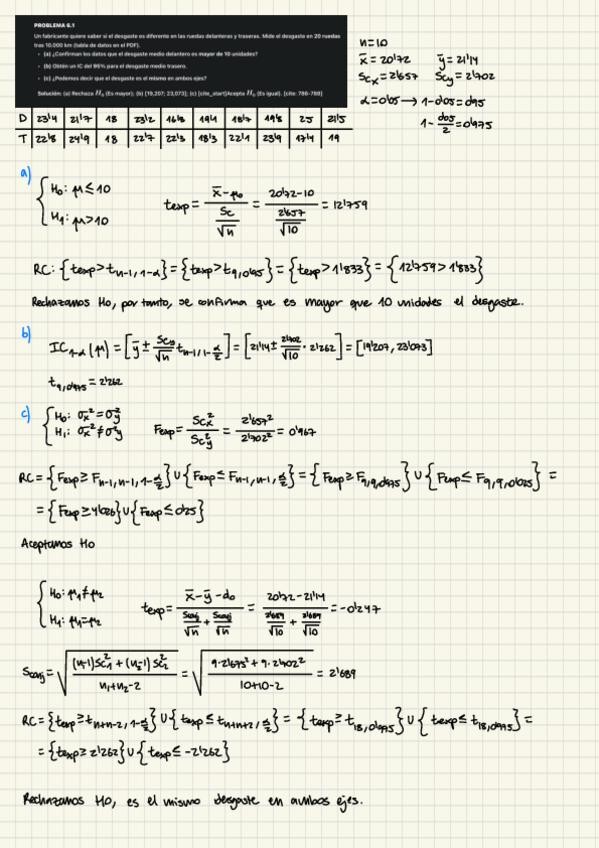 PROBLEMA 6.1
Un fabricante quiere saber si el desgaste es diferente en las ruedas delanteras y traseras. Mide el desgaste en 20 ruedas
tras 10.000 km (tabla de datos en el PDF).
• (a) ¿Confirman los datos que el desgaste medio delantero es mayor de 10 unidades?
• (b) Obtén un IC del 95% para el desgaste medio trasero.
• (c) ¿Podemos decir que el desgaste es el mismo en ambos ejes?
Solución: (a) Rechaza H₀ (Es mayor); (b) [19,207; 23,073]; (c) [cite_start]Acepta H₀ (Es igual). [cite: 786-788]
n=10
x̄ = 20'72 ȳ = 21'14
Scx = 2'657 Scy = 2'702
α=0'05 → 1-0'05=0'95
1-0'05/2=0'975
D 23'4 21'7 18 23'2 16'8 19'4 18'7 19'8 25 21'5
T 22'8 24'9 18 22'7 22'3 18'3 22'1 23'9 17'4 19
a)
{ H₀: μ≤10
H₁: μ>10
texp = (x̄-μ₀)/(Sc/√n) = (20'72-10)/(2'657/√10) = 12'759
RC: {texp>t n-1, 1-α} = {texp>t 9, 0'95} = {texp>1'833} = {12'759>1'833}
Rechazamos Ho, por tanto, se confirma que es mayor que 10 unidades el desgaste.
b)
IC 1-α (μ) = [ȳ ± Scy/√n t n-1, 1-α/2] = [21'14 ± 2'702/√10 · 2'262] = [19'207, 23'073]
t 9, 0'975 = 2'262
c)
{ H₀: σx² = σy²
H₁: σx² ≠ σ²y
Fexp = Scx²/Scy² = 2'657²/2'702² = 0'967
RC = {Fexp ≥ F n-1, n-1, 1-α/2} ∪ {Fexp ≤ F n-1, n-1, α/2} = {Fexp ≥ F 9, 9, 0'975} ∪ {Fexp ≤ F 9, 9, 0'025} =
= {Fexp ≥ 4'026} ∪ {Fexp ≤ 0'25}
Aceptamos Ho
{ H₀: μ₁≠μ₂
H₁: μ₁=μ₂
texp = (x̄-ȳ-d₀)/(Sconj/√n + Sconj/√n) = (20'72-21'14)/(2'689/√10 + 2'689/√10) = -0'247
Sconj = √(((n₁-1)Sc₁² + (n₂-1)Sc₂²)/(n₁+n₂-2)) = √((9·2'675² + 9·2'702²)/(10+10-2)) = 2'689
RC = {texp ≥ t n+n-2, 1-α/2} ∪ {texp ≤ t n+n-2, α/2} = {texp ≥ t 18, 0'975} ∪ {texp ≤ t 18, 0'975} =
= {texp ≥ 2'262} ∪ {texp ≤ -2'262}
Rechazamos Ho, es el mismo desgaste en ambos ejes.